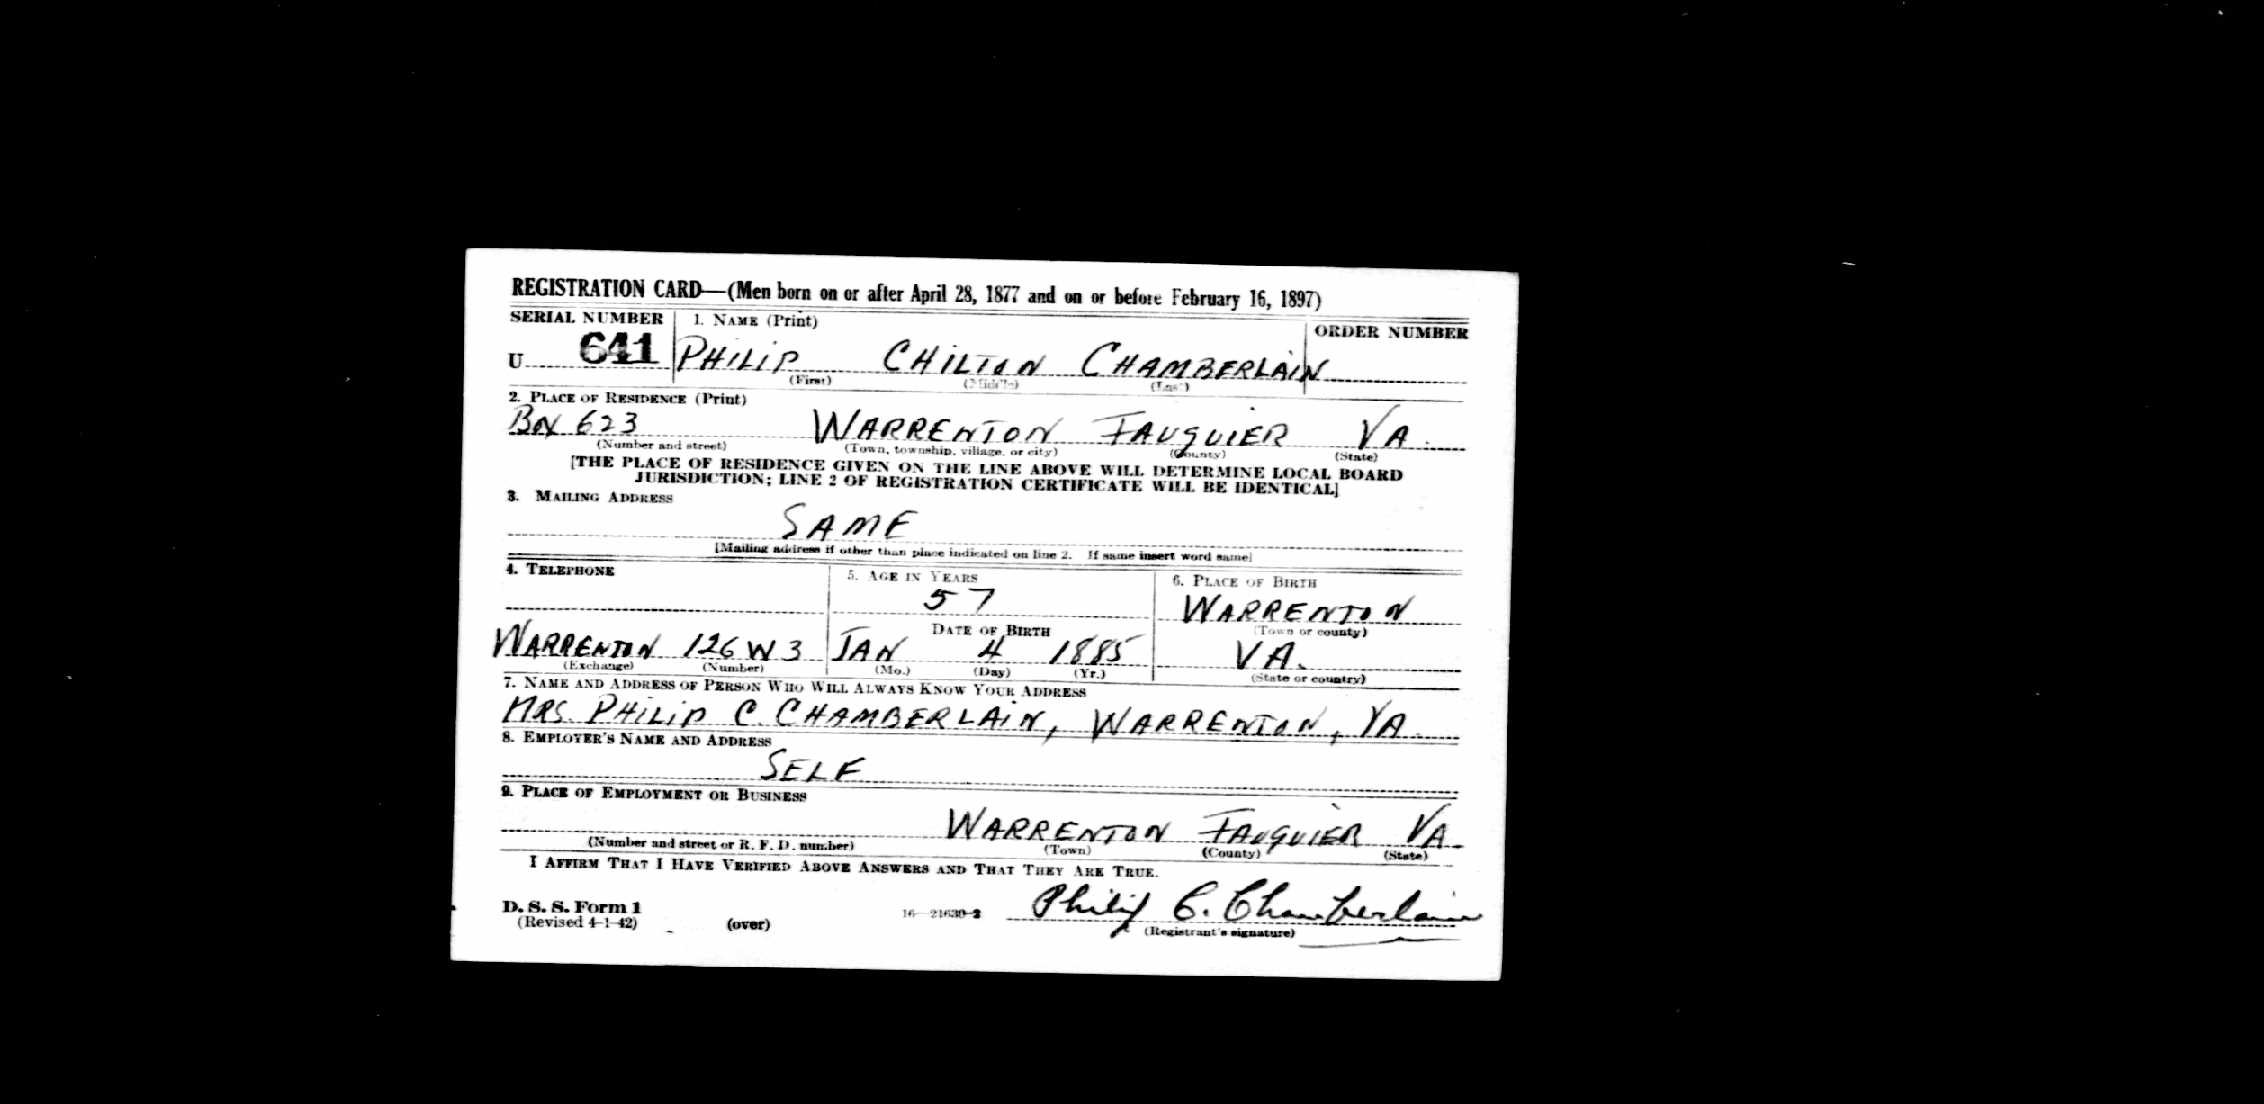 REGISTRATION CARD—(Men born on or after April 28, 1877 and on or before February 16, 1897)
SERIAL NUMBER 1. NAME (Print) ORDER NUMBER
U 641 PHILIP CHILTON CHAMBERLAIN
(First) (Middle) (Last)
2. PLACE OF RESIDENCE (Print)
BOX 623 WARRENTON FAUQUIER VA.
(Number and street) (Town, township, village, or city) (County) (State)
[THE PLACE OF RESIDENCE GIVEN ON THE LINE ABOVE WILL DETERMINE LOCAL BOARD
JURISDICTION; LINE 2 OF REGISTRATION CERTIFICATE WILL BE IDENTICAL]
3. MAILING ADDRESS
SAME
[Mailing address if other than place indicated on line 2. If same insert word same]
4. TELEPHONE 5. AGE IN YEARS 6. PLACE OF BIRTH
57 WARRENTON
DATE OF BIRTH (Town or county)
WARRENTON 126 W 3 JAN 4 1885 VA.
(Exchange) (Number) (Mo.) (Day) (Yr.) (State or country)
7. NAME AND ADDRESS OF PERSON WHO WILL ALWAYS KNOW YOUR ADDRESS
MRS. PHILIP C. CHAMBERLAIN, WARRENTON, VA.
8. EMPLOYER'S NAME AND ADDRESS
SELF
9. PLACE OF EMPLOYMENT OR BUSINESS
WARRENTON FAUQUIER VA.
(Number and street or R. F. D. number) (Town) (County) (State)
I AFFIRM THAT I HAVE VERIFIED ABOVE ANSWERS AND THAT THEY ARE TRUE.
Philip C. Chamberlain
D. S. S. Form 1 16—21630-2
(Revised 4-1-42) (over) (Registrant's signature)